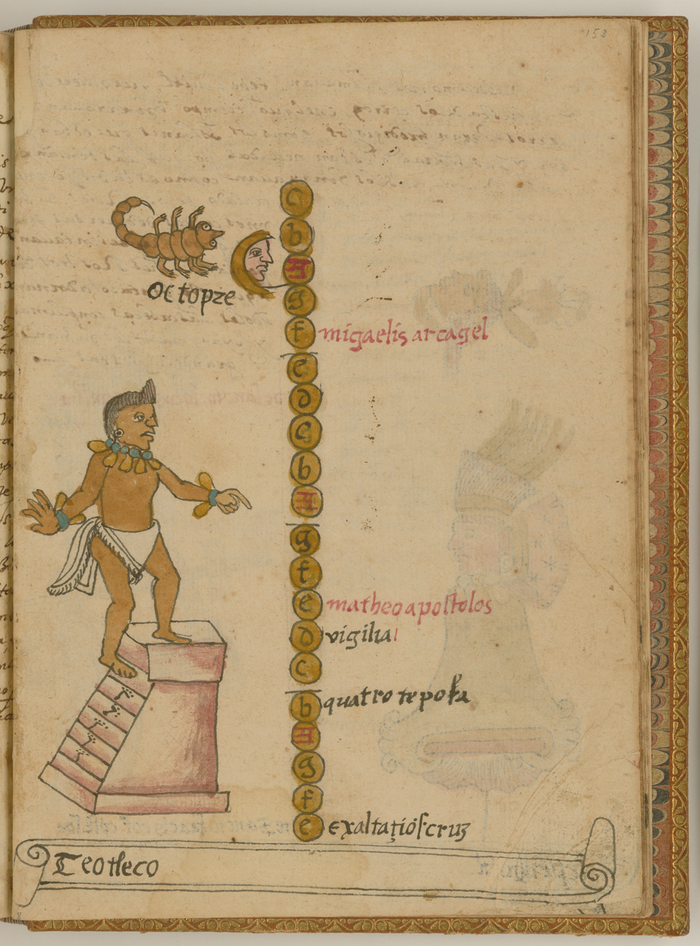 c
b
A
octopze
g
f migaelis arcagel
e
d
c
b
A
g
f
e matheo apostolos
d vigilia
c
b quatro tepora
A
g
f
e exaltatiõ s cruz
Teotleco